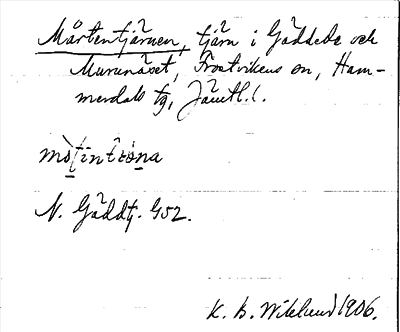 Mårtentjärnen, tjärn i Gäddede och
Murunäset, Frostvikens sn, Ham-
merdals tg, Jämtl. l.
N. Gäddtj. 952.
K. B. Wiklund 1906.